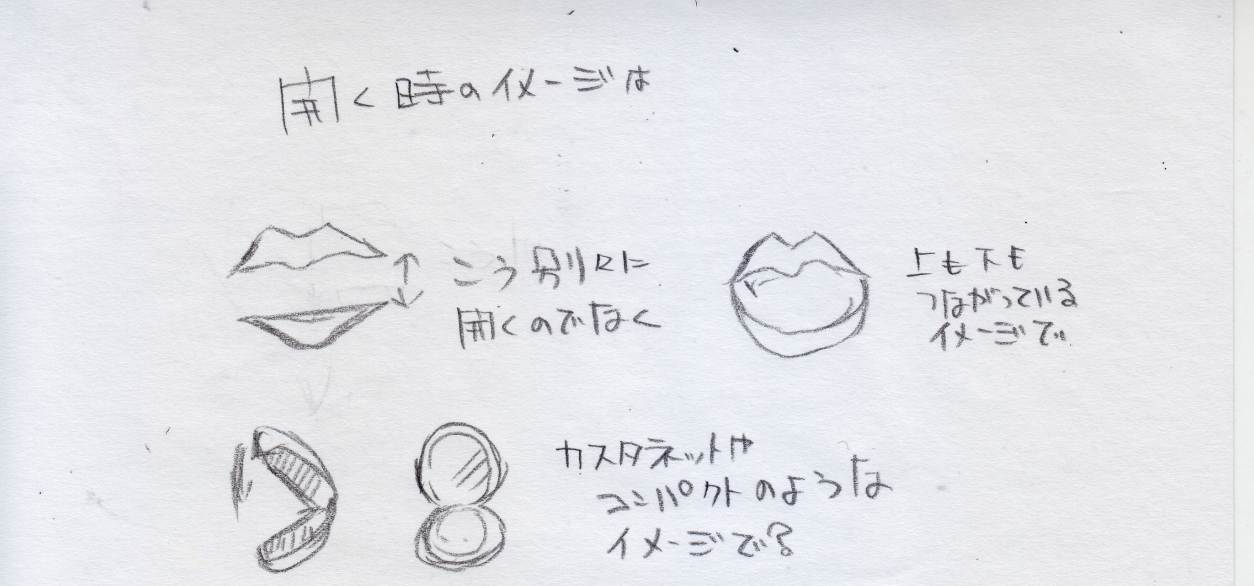 開く時のイメージは
こう別々に
開くのでなく
上も下も
つながっている
イメージで
カスタネットや
コンパクトのような
イメージで?